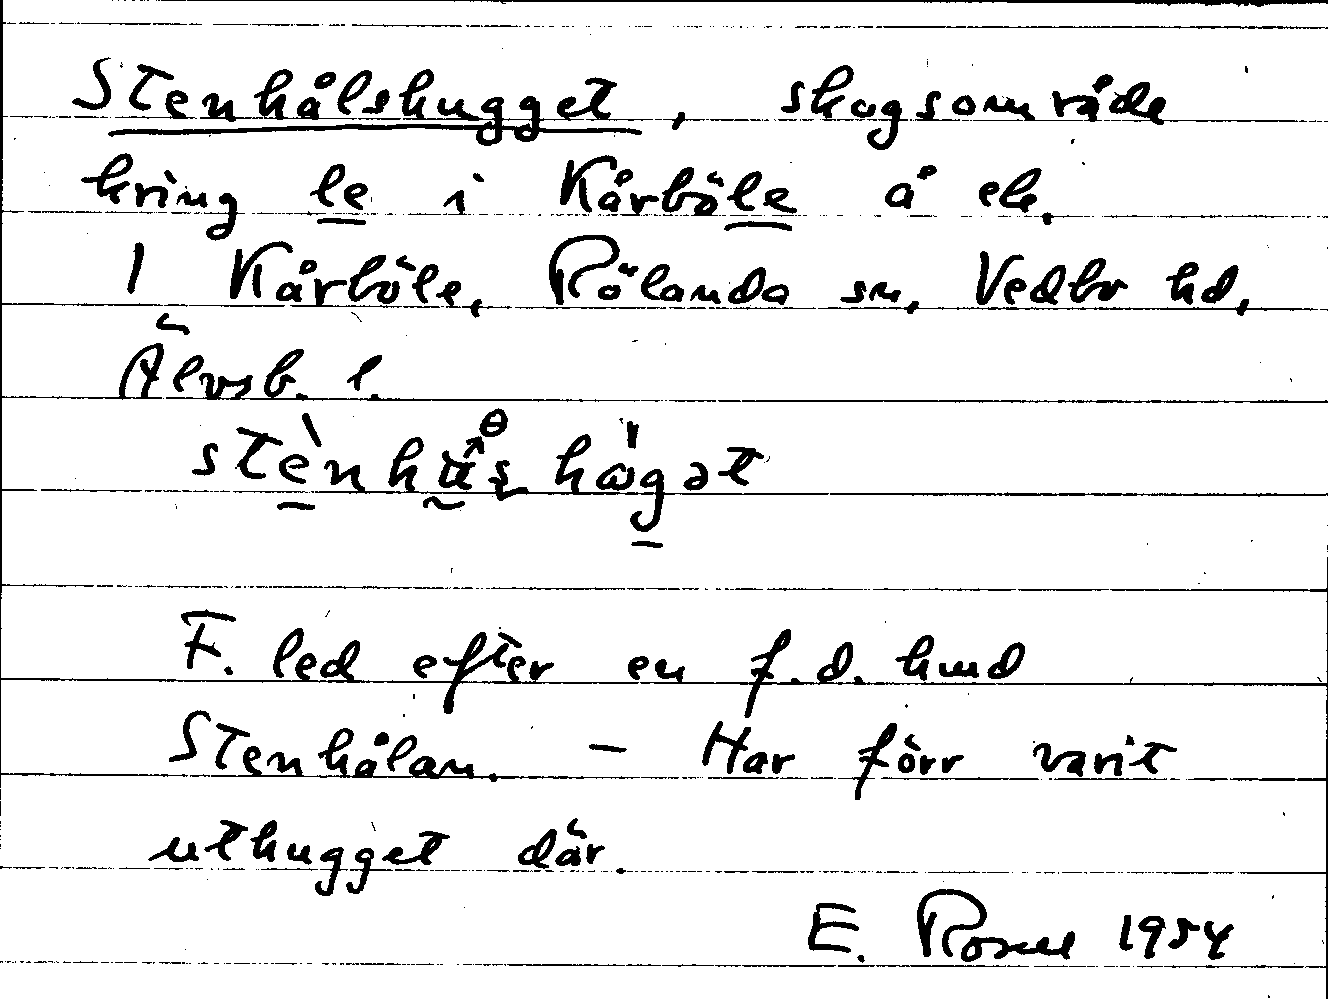 Stenhålshugget, skogsområde
kring le i Kårböle å ek.
1 Kårböle, Rölanda sn, Vedbo hd,
Älvsb. l.
F. led efter en f.d. hmd
Stenhålan. – Har förr varit
uthugget där.
E. Rosell 1954